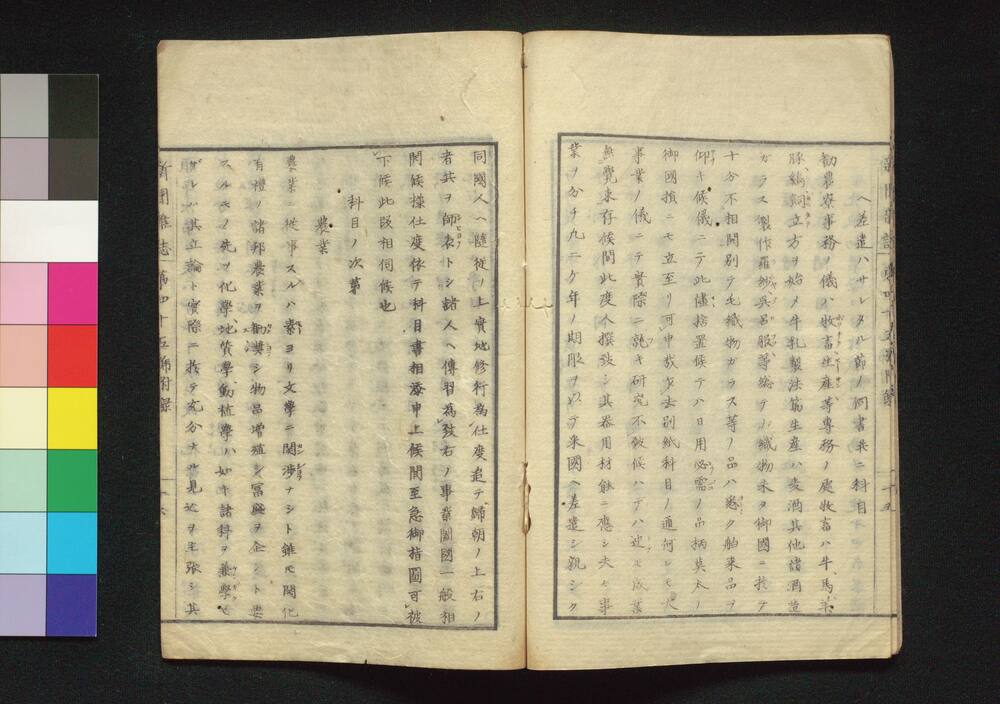 ヘ差遣ハサレタル節ノ伺書並ニ科目
勧農寮事務ノ儀ハ牧畜生産等専務ノ處牧畜ハ牛、馬羊
豚鶏飼立方ヲ始メ牛乳製法筋生産ハ麦酒其他諸酒造
ガラス製作羅紗呉呂服等総テノ織物未タ御國ニ於テ
十分不相開別テ毛織物ガラス等ノ品ハ悉ク舶来品ヲ
仰キ候儀ニテ此儘捨置候テハ日用必需ノ品柄莫大ノ
御國損ニモ立至リ可申哉就テハ別紙科目ノ通何レモ大
事業ノ儀ニテ實際ニ就キ研究不致候ハテハ迚モ成業
無覺束存候間此度人撰致シ其器用材能ニ應シ夫々事
業ヲ分チ九三ケ年ノ期限ヲ以テ米國ヘ差遣シ親シク
同國人ヘ隨従ノ上實地修行為仕度追テ歸朝ノ上右ノ
者共ヲ師表トシ諸人ヘ傳習為致右ノ事業闔國一般相
開候様仕度依テ科目書相添申上候間至急御指圖可被
下候此段相伺候也
科目ノ次第
農業
農業ニ従事スルハ素ヨリ文學ニ関渉ナシト雖モ開化
有禮ノ諸邦農業ヲ勧奨シ物品増殖シ冨興ヲ企ント要
スルモノ先ツ化學、地質學、動植學ハ如キ諸科ヲ兼學セ
サレハ其立論ト實際ニ於テ充分ナル見込ヲ主張シ其
新聞雑誌 第四十五號附録